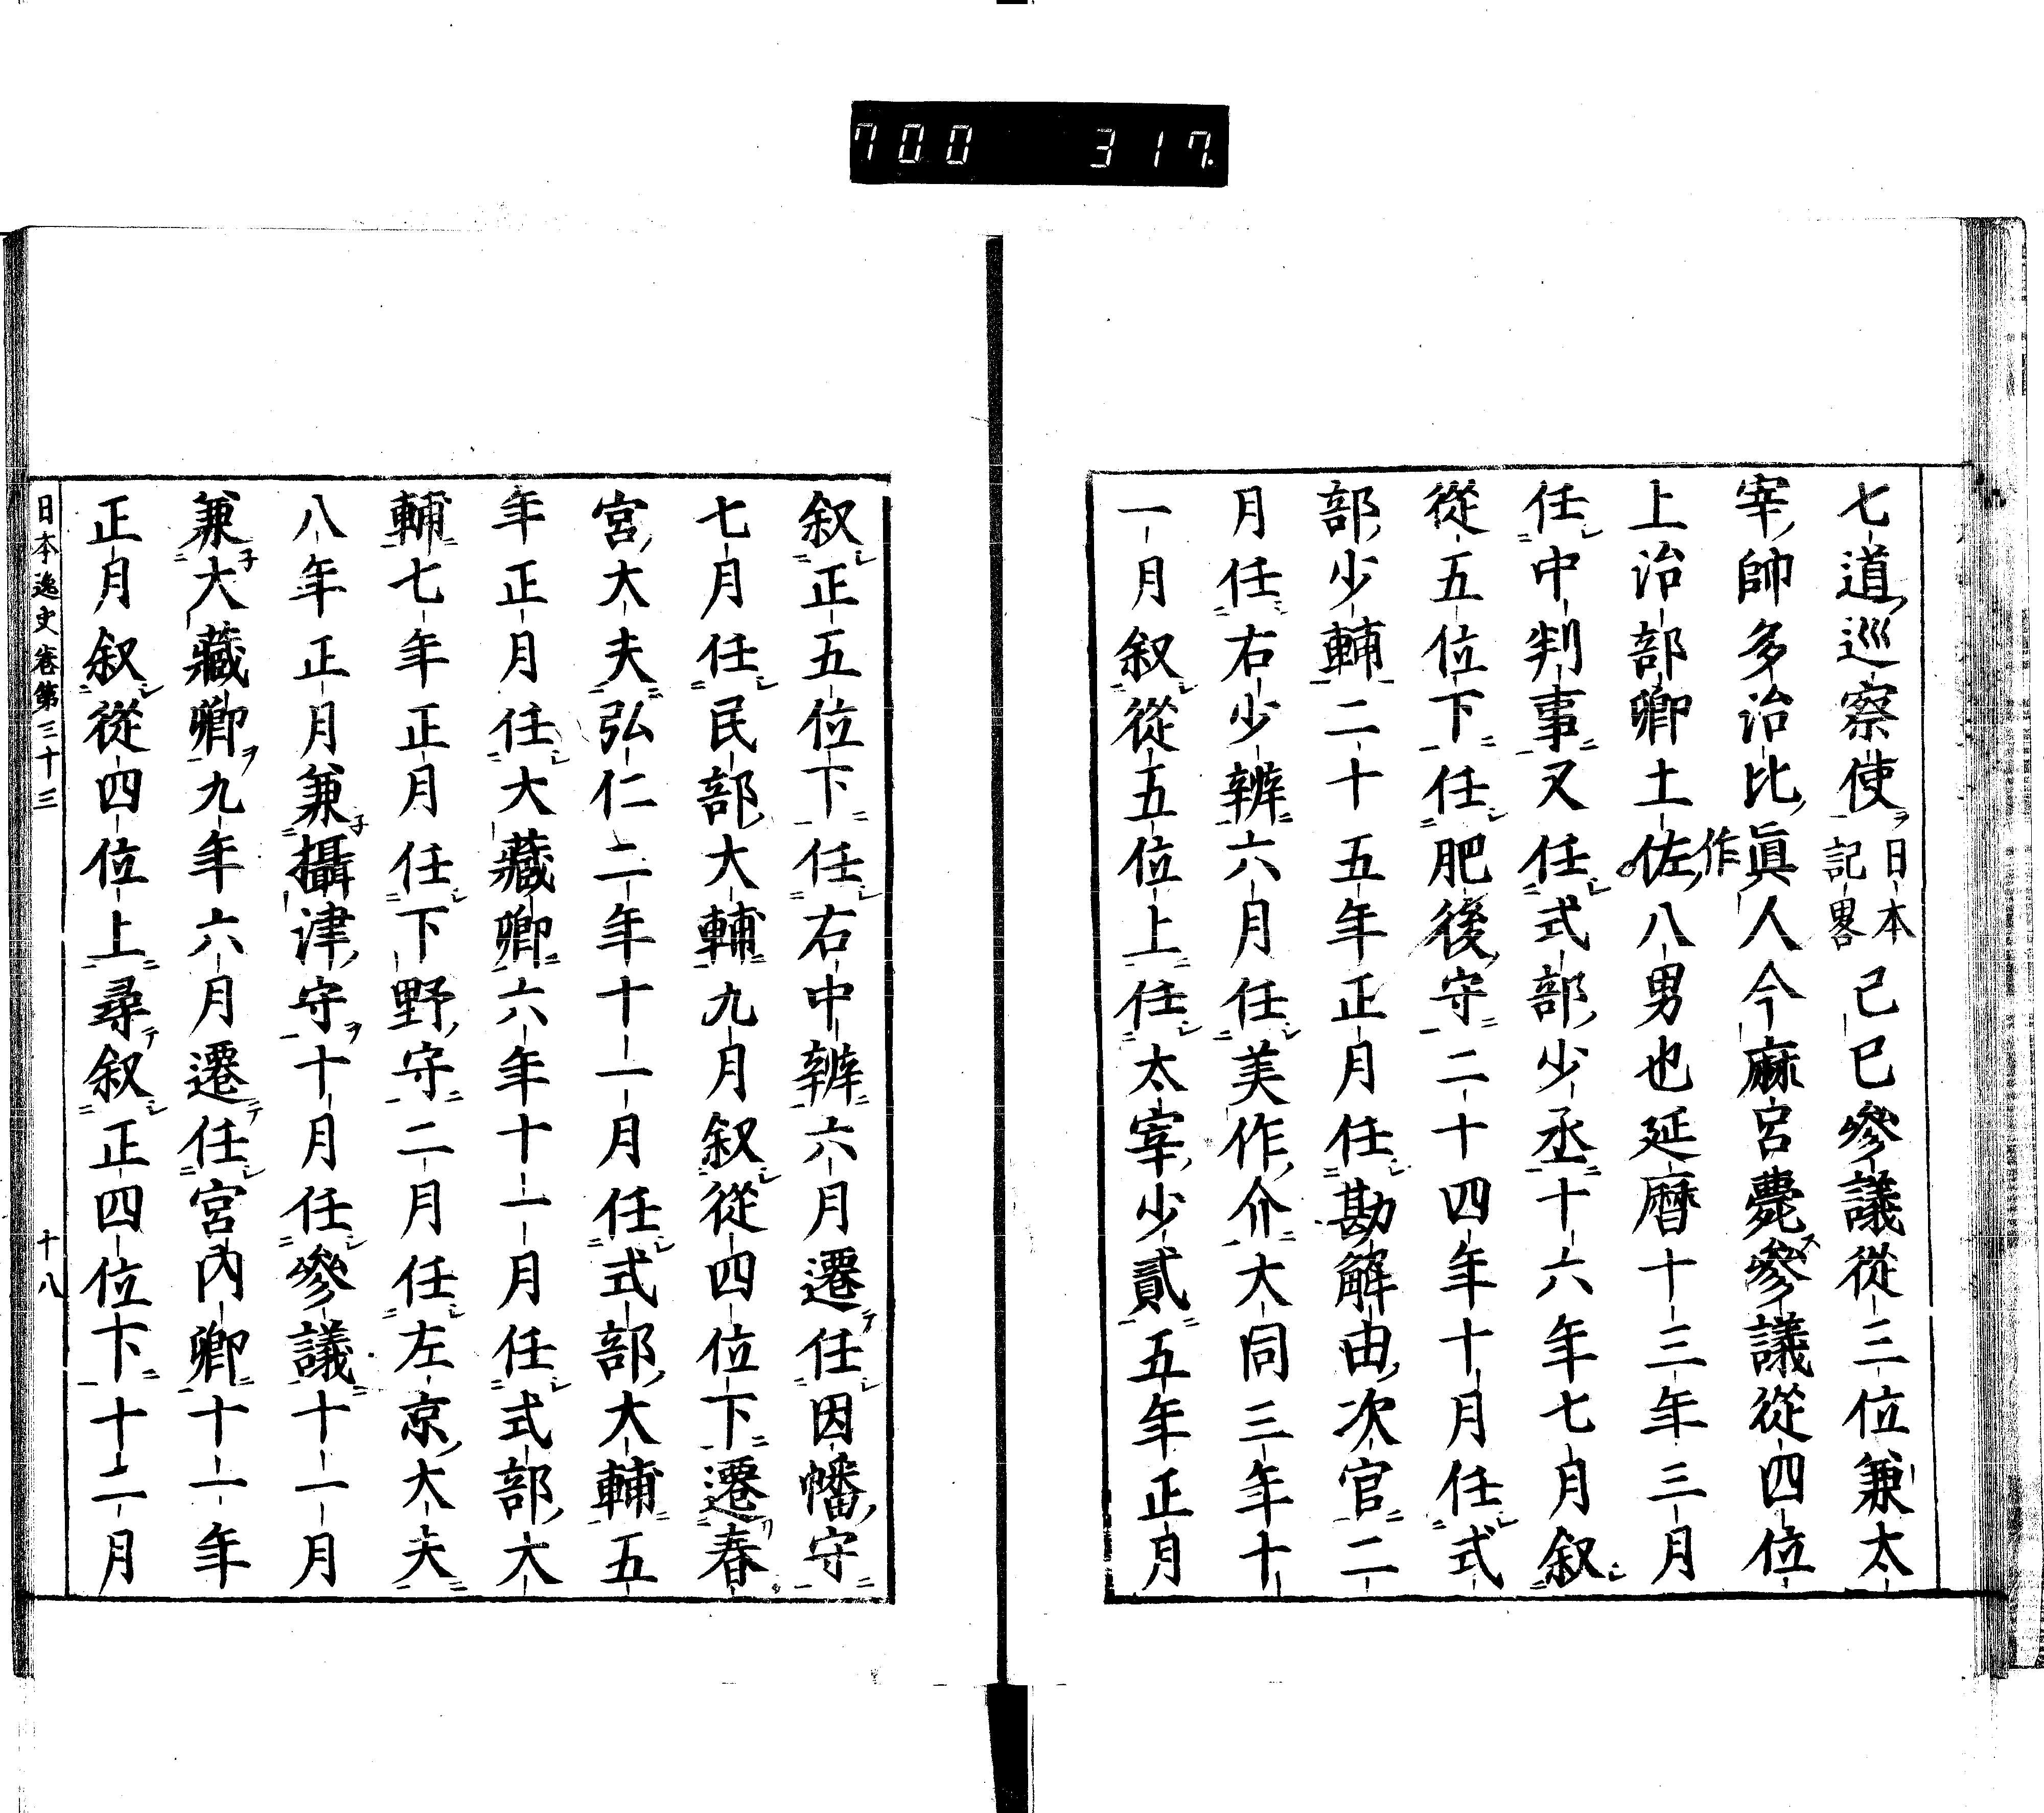 700 317
七道巡察使日本記畧己巳參議從三位兼太
宰帥多治比眞人今麻呂薨參議從四位
上治部卿土佐作八男也延暦十三年三月
任中判事又任式部少丞十六年七月叙
從五位下任肥後守二十四年十月任式
部少輔二十五年正月任勘解由次官二
月任右少辨六月任美作介大同三年十
一月叙從五位上任太宰少貳五年正月
叙正五位下任右中辨六月遷任因幡守
七月任民部大輔九月叙從四位下遷春
宮大夫弘仁二年十一月任式部大輔五
年正月任大藏卿六年十一月任式部大
輔七年正月任下野守二月任左京大夫
八年正月兼攝津守十月任參議十一月
兼大藏卿九年六月遷任宮內卿十一年
正月叙從四位上尋叙正四位下十二月
日本逸史卷第三十三 十八